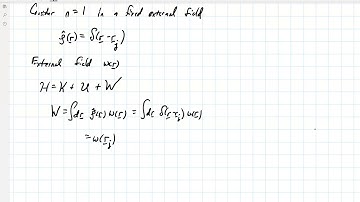 Consider n=1 in a fixed external field
ρ̂(r) = δ(r - r_j)
External field w(r)
H = K + U + W
W = ∫dr ρ̂(r) w(r) = ∫dr δ(r-r_j) w(r)
= w(r_j)